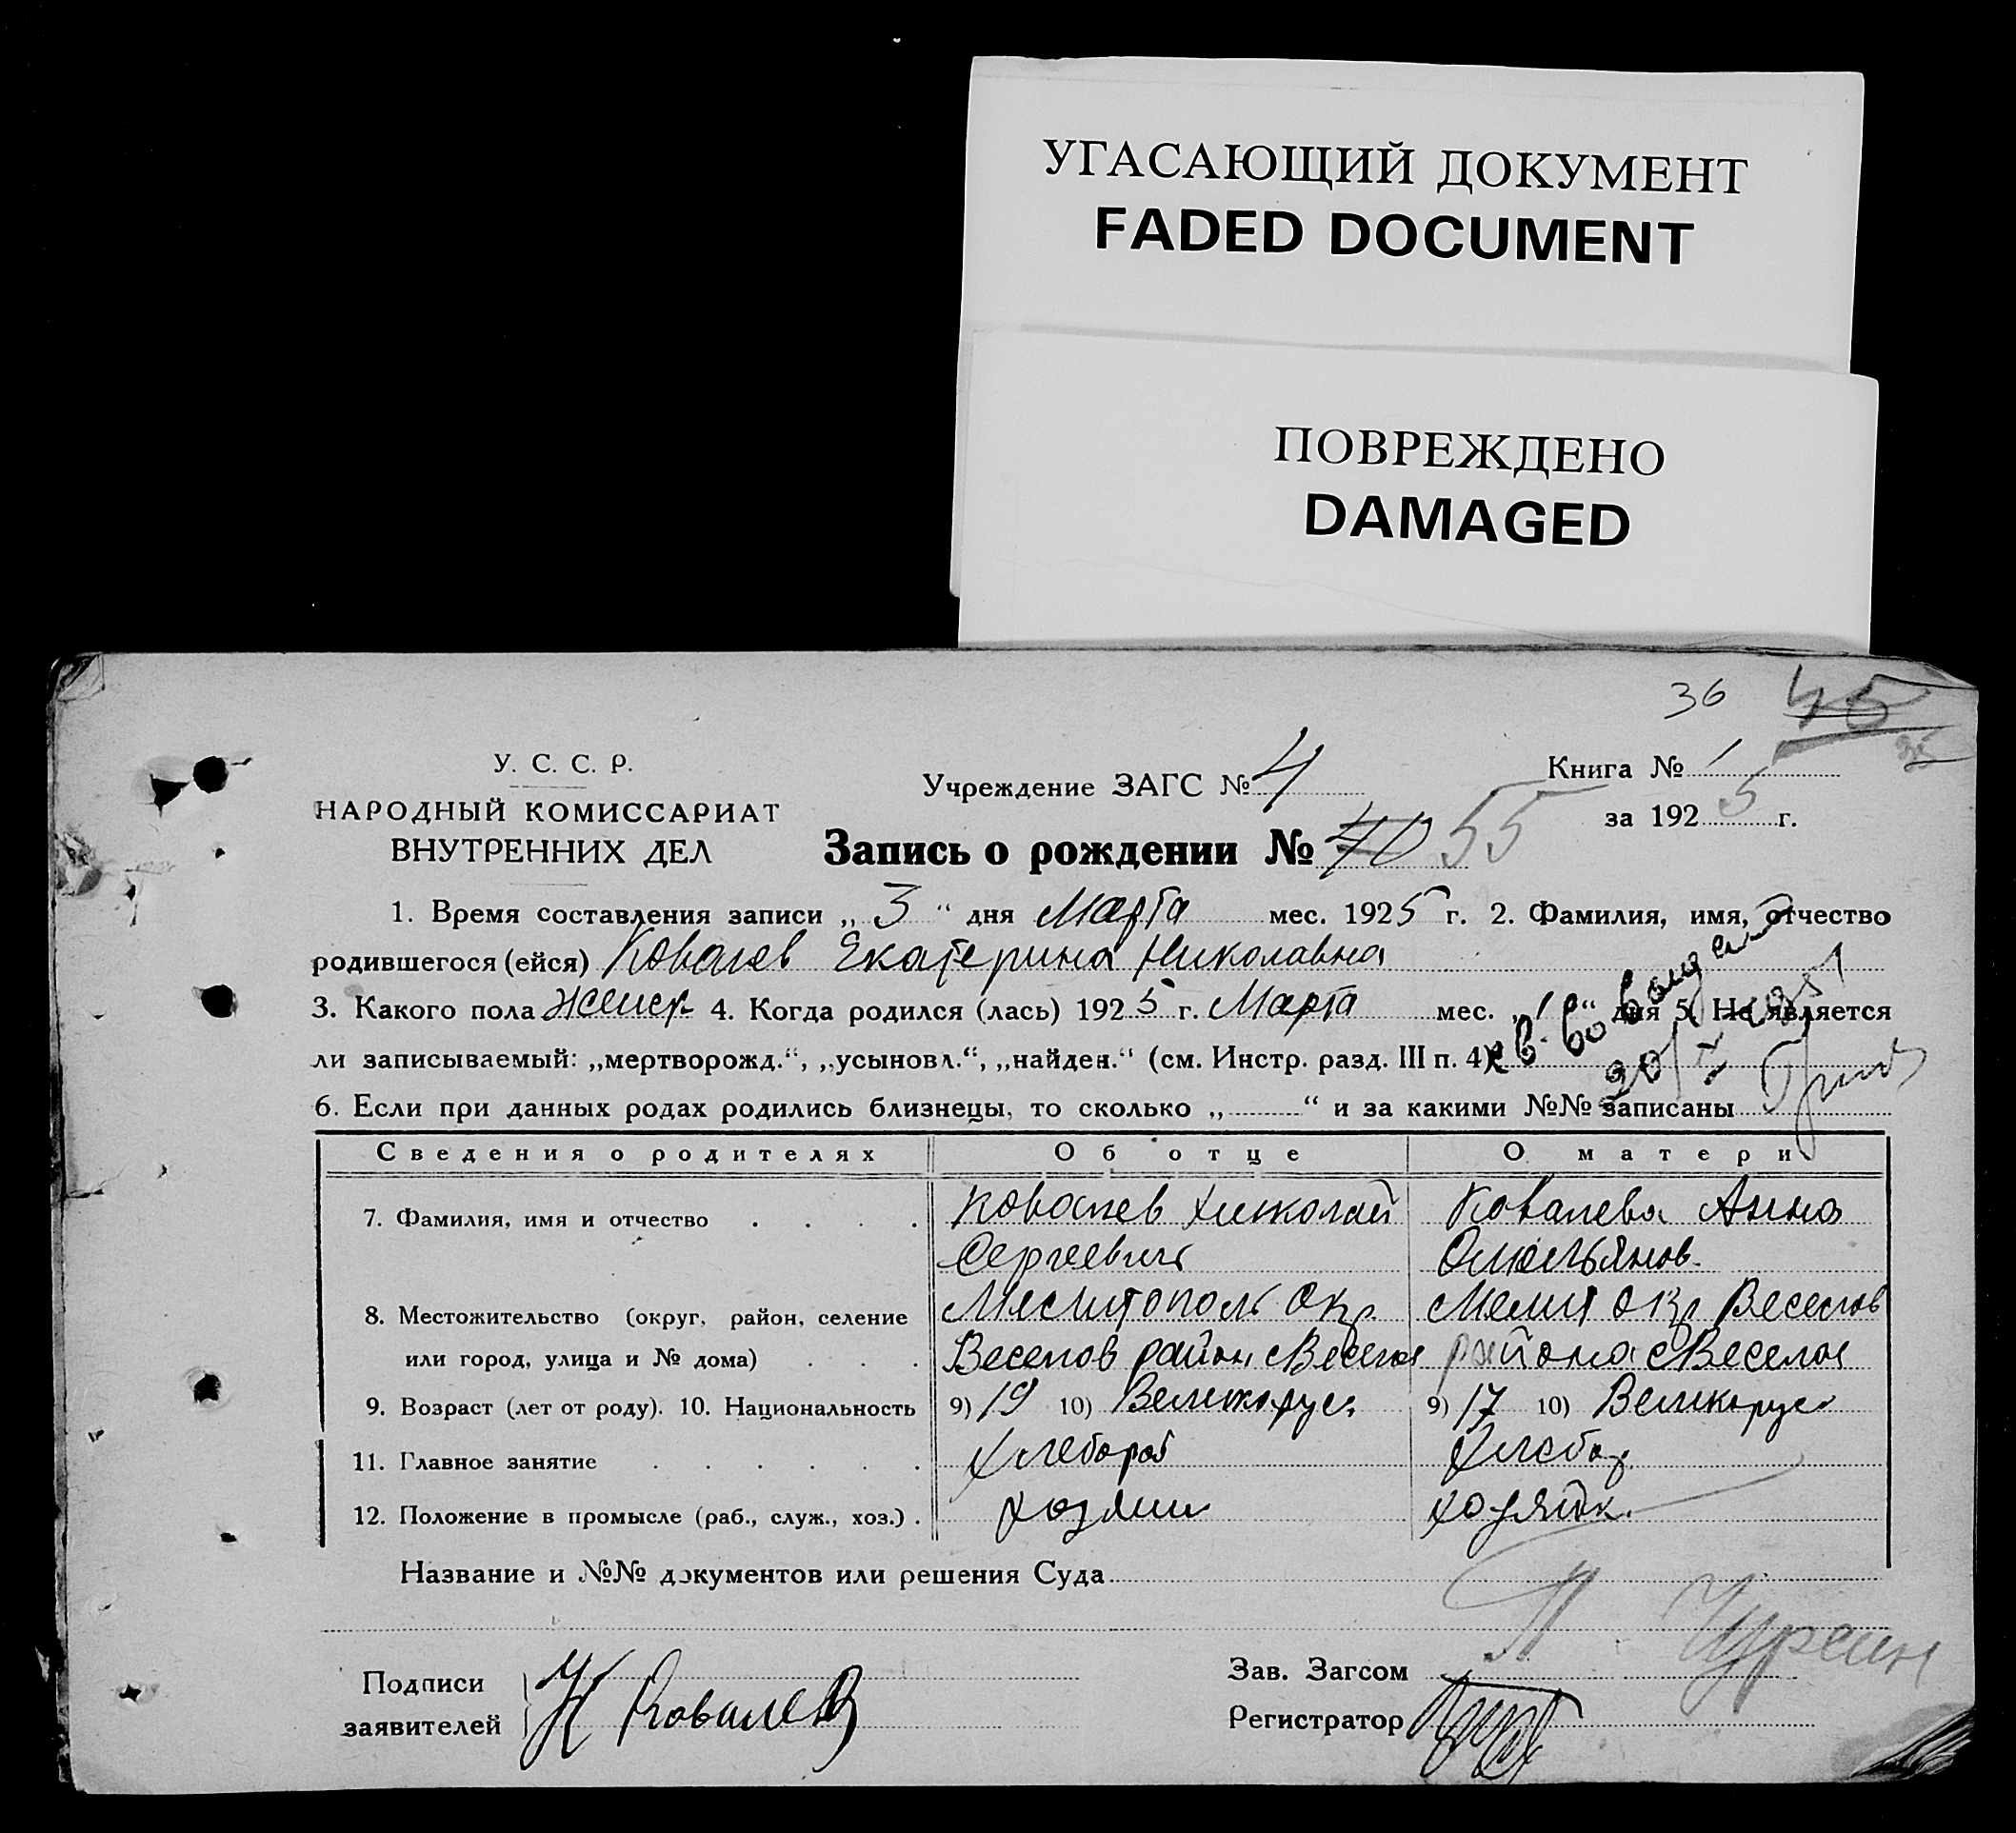 УГАСАЮЩИЙ ДОКУМЕНТ
FADED DOCUMENT
ПОВРЕЖДЕНО
DAMAGED
36 45
У. С. С. Р.
НАРОДНЫЙ КОМИССАРИАТ
ВНУТРЕННИХ ДЕЛ
Учреждение ЗАГС № 4
Книга № 1
за 1925 г.
Запись о рождении № 40 55
1. Время составления записи „ 3 " дня Марта мес. 1925 г. 2. Фамилия, имя, отчество
родившегося (ейся) Ковалев Екатерина Николавна
3. Какого пола женск 4. Когда родился (лась) 1925 г. Марта мес. „ 1 " дня 5. Не является
ли записываемый: „мертворожд.", „усыновл.", „найден." (см. Инстр. разд. III п. 4)
6. Если при данных родах родились близнецы, то сколько „ " и за какими №№ записаны
Сведения о родителях Об отце О матери
7. Фамилия, имя и отчество Ковалев Николай Ковалева Анна
Сергеевич Омельянов.
8. Местожительство (округ, район, селение Мелитополь Окр. Мелит окр Веселов
или город, улица и № дома) Веселов район с Веселое района с Веселое
9. Возраст (лет от роду). 10. Национальность 9) 19 10) Великорус. 9) 17 10) Великорус
11. Главное занятие Хлебороб Хлебор.
12. Положение в промысле (раб., служ., хоз.) хозяин хозяйк.
Название и №№ документов или решения Суда
Подписи
заявителей Н Ковалев
Зав. Загсом
Регистратор